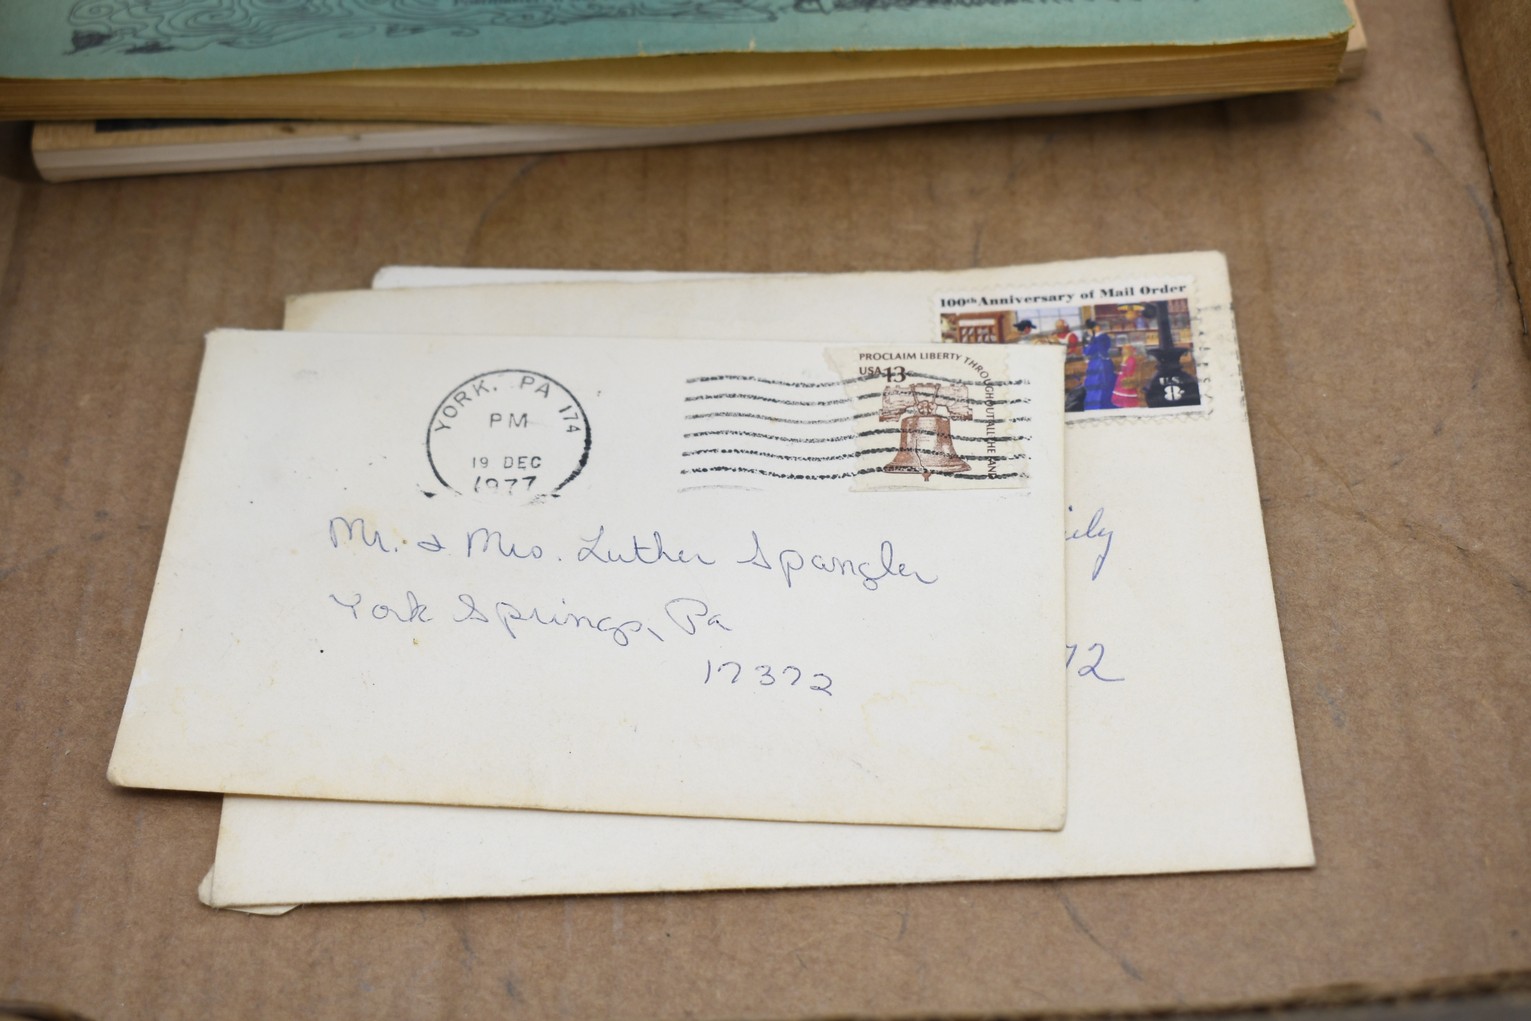 100th Anniversary of Mail Order
U.S.
8
PROCLAIM LIBERTY THROUGHOUT ALL THE LAND
USA 13
YORK, PA 174
PM
19 DEC
1977
Mr. & Mrs. Luther Spangler
York Springs, Pa
17372
ily
72